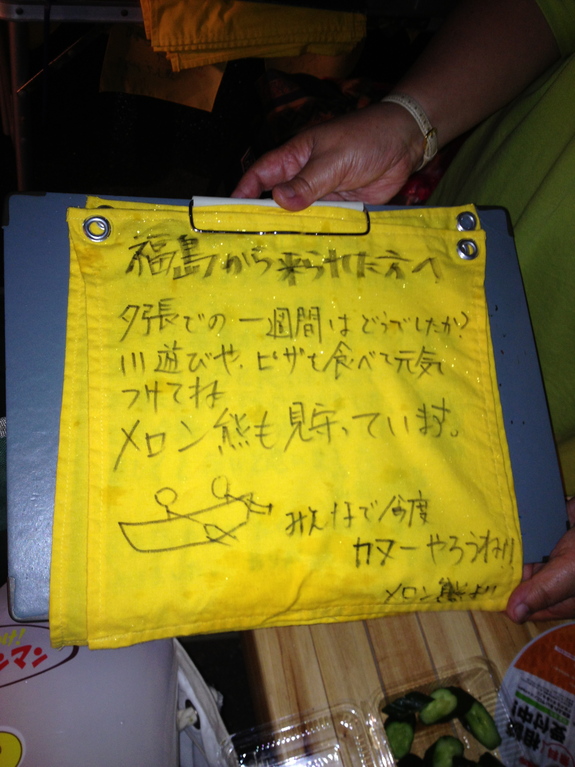 福島から来られた方へ
夕張での一週間はどうでしたか?
川遊びや、ピザも食べて元気
つけてね
メロン熊も見守っています。
みんなで今度
カヌーやろうね!!
メロン熊より
ンマン
相談
受付中!